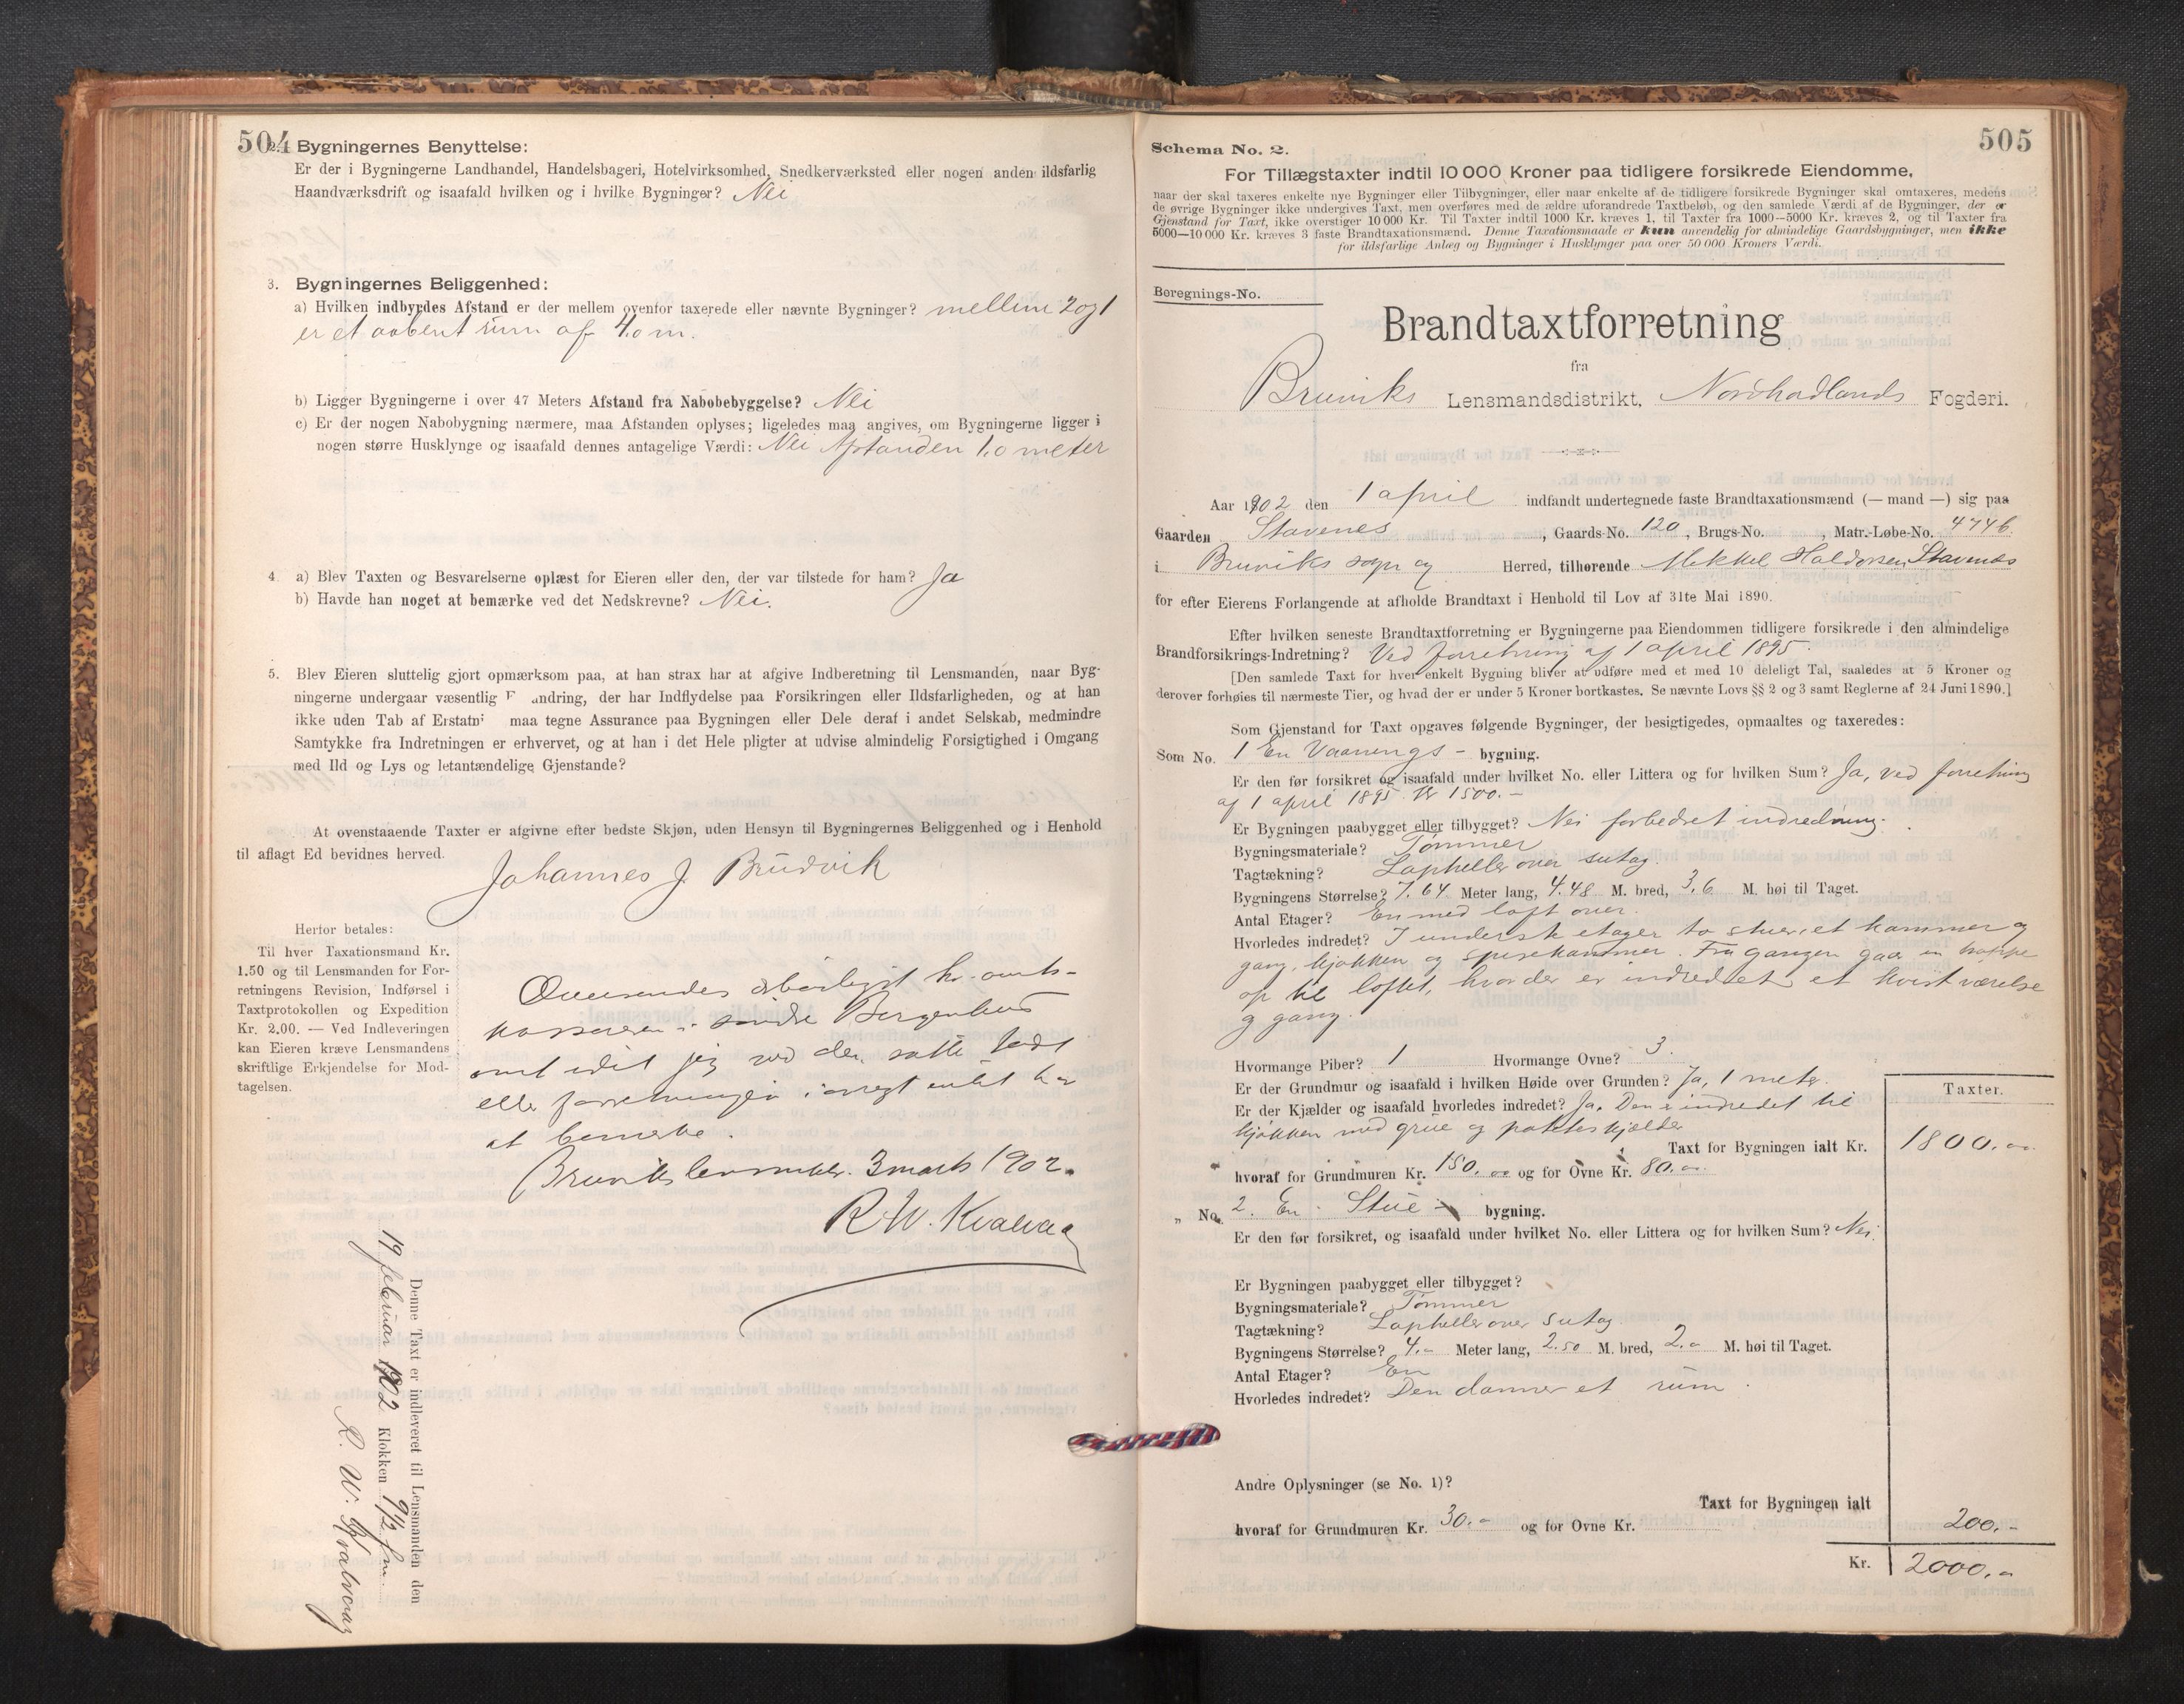 504
2. Bygningernes Benyttelse:
Er der i Bygningerne Landhandel, Handelsbageri, Hotelvirksomhed, Snedkerværksted eller nogen anden ildsfarlig
Haandværksdrift og isaafald hvilken og i hvilke Bygninger? Nei
3. Bygningernes Beliggenhed:
a) Hvilken indbyrdes Afstand er der mellem ovenfor taxerede eller nævnte Bygninger? mellem 2 og 1
er et aabent rum af 4.0 m.
b) Ligger Bygningerne i over 47 Meters Afstand fra Nabobebyggelse? Nei
c) Er der nogen Nabobygning nærmere, maa Afstanden oplyses; ligeledes maa angives, om Bygningerne ligger i
nogen større Husklynge og isaafald dennes antagelige Værdi: Nei Afstanden 1.0 meter
4. a) Blev Taxten og Besvarelserne oplæst for Eieren eller den, der var tilstede for ham? Ja
b) Havde han noget at bemærke ved det Nedskrevne? Nei.
5. Blev Eieren sluttelig gjort opmærksom paa, at han strax har at afgive Indberetning til Lensmanden, naar Byg-
ningerne undergaar væsentlig F andring, der har Indflydelse paa Forsikringen eller Ildsfarligheden, og at han
ikke uden Tab af Erstatn maa tegne Assurance paa Bygningen eller Dele deraf i andet Selskab, medmindre
Samtykke fra Indretningen er erhvervet, og at han i det Hele pligter at udvise almindelig Forsigtighed i Omgang
med Ild og Lys og letantændelige Gjenstande?
At ovenstaaende Taxter er afgivne efter bedste Skjøn, uden Hensyn til Bygningernes Beliggenhed og i Henhold
til aflagt Ed bevidnes herved.
Johannes J. Brudvik
Herfor betales:
Til hver Taxationsmand Kr.
1.50 og til Lensmanden for For-
retningens Revision, Indførsel i
Taxtprotokollen og Expedition
Kr. 2.00. — Ved Indleveringen
kan Eieren kræve Lensmandens
skriftlige Erkjendelse for Mod-
tagelsen.
Oversendes ærbødigst hr. amts-
kassereren i søndre Bergenhus
amt idet jeg ved den satte taxt
eller forretningen iøvrigt intet har
at bemerke.
Bruviks lensmbst. 3 marts 1902.
R. W. Kvalvaag
Denne Taxt er indleveret til Lensmanden den
19 februar 1902 Klokken 9 1/2 fm.
R. W. Kvalvaag
505
Schema No. 2.
For Tillægstaxter indtil 10 000 Kroner paa tidligere forsikrede Eiendomme,
naar der skal taxeres enkelte nye Bygninger eller Tilbygninger, eller naar enkelte af de tidligere forsikrede Bygninger skal omtaxeres, medens
de øvrige Bygninger ikke undergives Taxt, men overføres med de ældre uforandrede Taxtbeløb, og den samlede Værdi af de Bygninger, der er
Gjenstand for Taxt, ikke overstiger 10 000 Kr. Til Taxter indtil 1000 Kr. kræves 1, til Taxter fra 1000—5000 Kr. kræves 2, og til Taxter fra
5000—10 000 Kr. kræves 3 faste Brandtaxationsmænd. Denne Taxationsmaade er kun anvendelig for almindelige Gaardsbygninger, men ikke
for ildsfarlige Anlæg og Bygninger i Husklynger paa over 50 000 Kroners Værdi.
Beregnings-No.
Brandtaxtforretning
fra
Bruviks Lensmandsdistrikt, Nordhordlands Fogderi.
Aar 1902 den 1 april indfandt undertegnede faste Brandtaxationsmænd (— mand —) sig paa
Gaarden Stavenes, Gaards-No. 120, Brugs-No. , Matr.-Løbe-No. 474b
i Bruviks sogn og Herred, tilhørende Mekkel Haldorsen Stavenes
for efter Eierens Forlangende at afholde Brandtaxt i Henhold til Lov af 31te Mai 1890.
Efter hvilken seneste Brandtaxtforretning er Bygningerne paa Eiendommen tidligere forsikrede i den almindelige
Brandforsikrings-Indretning? Ved forretning af 1 april 1895.
[Den samlede Taxt for hver enkelt Bygning bliver at udføre med et med 10 deleligt Tal, saaledes at 5 Kroner og
derover forhøies til nærmeste Tier, og hvad der er under 5 Kroner bortkastes. Se nævnte Lovs §§ 2 og 3 samt Reglerne af 24 Juni 1890.]
Som Gjenstand for Taxt opgaves følgende Bygninger, der besigtigedes, opmaaltes og taxeredes:
Som No. 1 En Vaanings - bygning.
Er den før forsikret og isaafald under hvilket No. eller Littera og for hvilken Sum? Ja, ved forretning
af 1 april 1895 Kr 1500.-
Er Bygningen paabygget eller tilbygget? Nei forbedret indredning.
Bygningsmateriale? Tømmer
Tagtækning? Lapheller over sutag.
Bygningens Størrelse? 7.64 Meter lang, 4.48 M. bred, 3.6 M. høi til Taget.
Antal Etager? En med loft over.
Hvorledes indredet? I underste etager to stuer, et kammer og
gang, kjøkken og spisekammer. Fra gangen gaar en trappe
op til loftet, hvor der er indredet et kvistværelse
og gang.
Hvormange Piber? 1 Hvormange Ovne? 3.
Er der Grundmur og isaafald i hvilken Høide over Grunden? Ja, 1 meter.
Er der Kjælder og isaafald hvorledes indredet? Ja. Den er indredet til
kjøkken med grue og potetkjelder
Taxter.
Taxt for Bygningen ialt Kr. 1800.00
hvoraf for Grundmuren Kr. 150.00 og for Ovne Kr. 80.00
„ No. 2. En Stue - bygning.
Er den før forsikret, og isaafald under hvilket No. eller Littera og for hvilken Sum? Nei.
Er Bygningen paabygget eller tilbygget?
Bygningsmateriale? Tømmer
Tagtækning? Lapheller over sutag.
Bygningens Størrelse? 4.- Meter lang, 2.50 M. bred, 2.0 M. høi til Taget.
Antal Etager? En
Hvorledes indredet? Den danner et rum.
Andre Oplysninger (se No. 1)?
Taxt for Bygningen ialt
hvoraf for Grundmuren Kr. 30.- og for Ovne Kr. 200.-
Kr. 2000.-